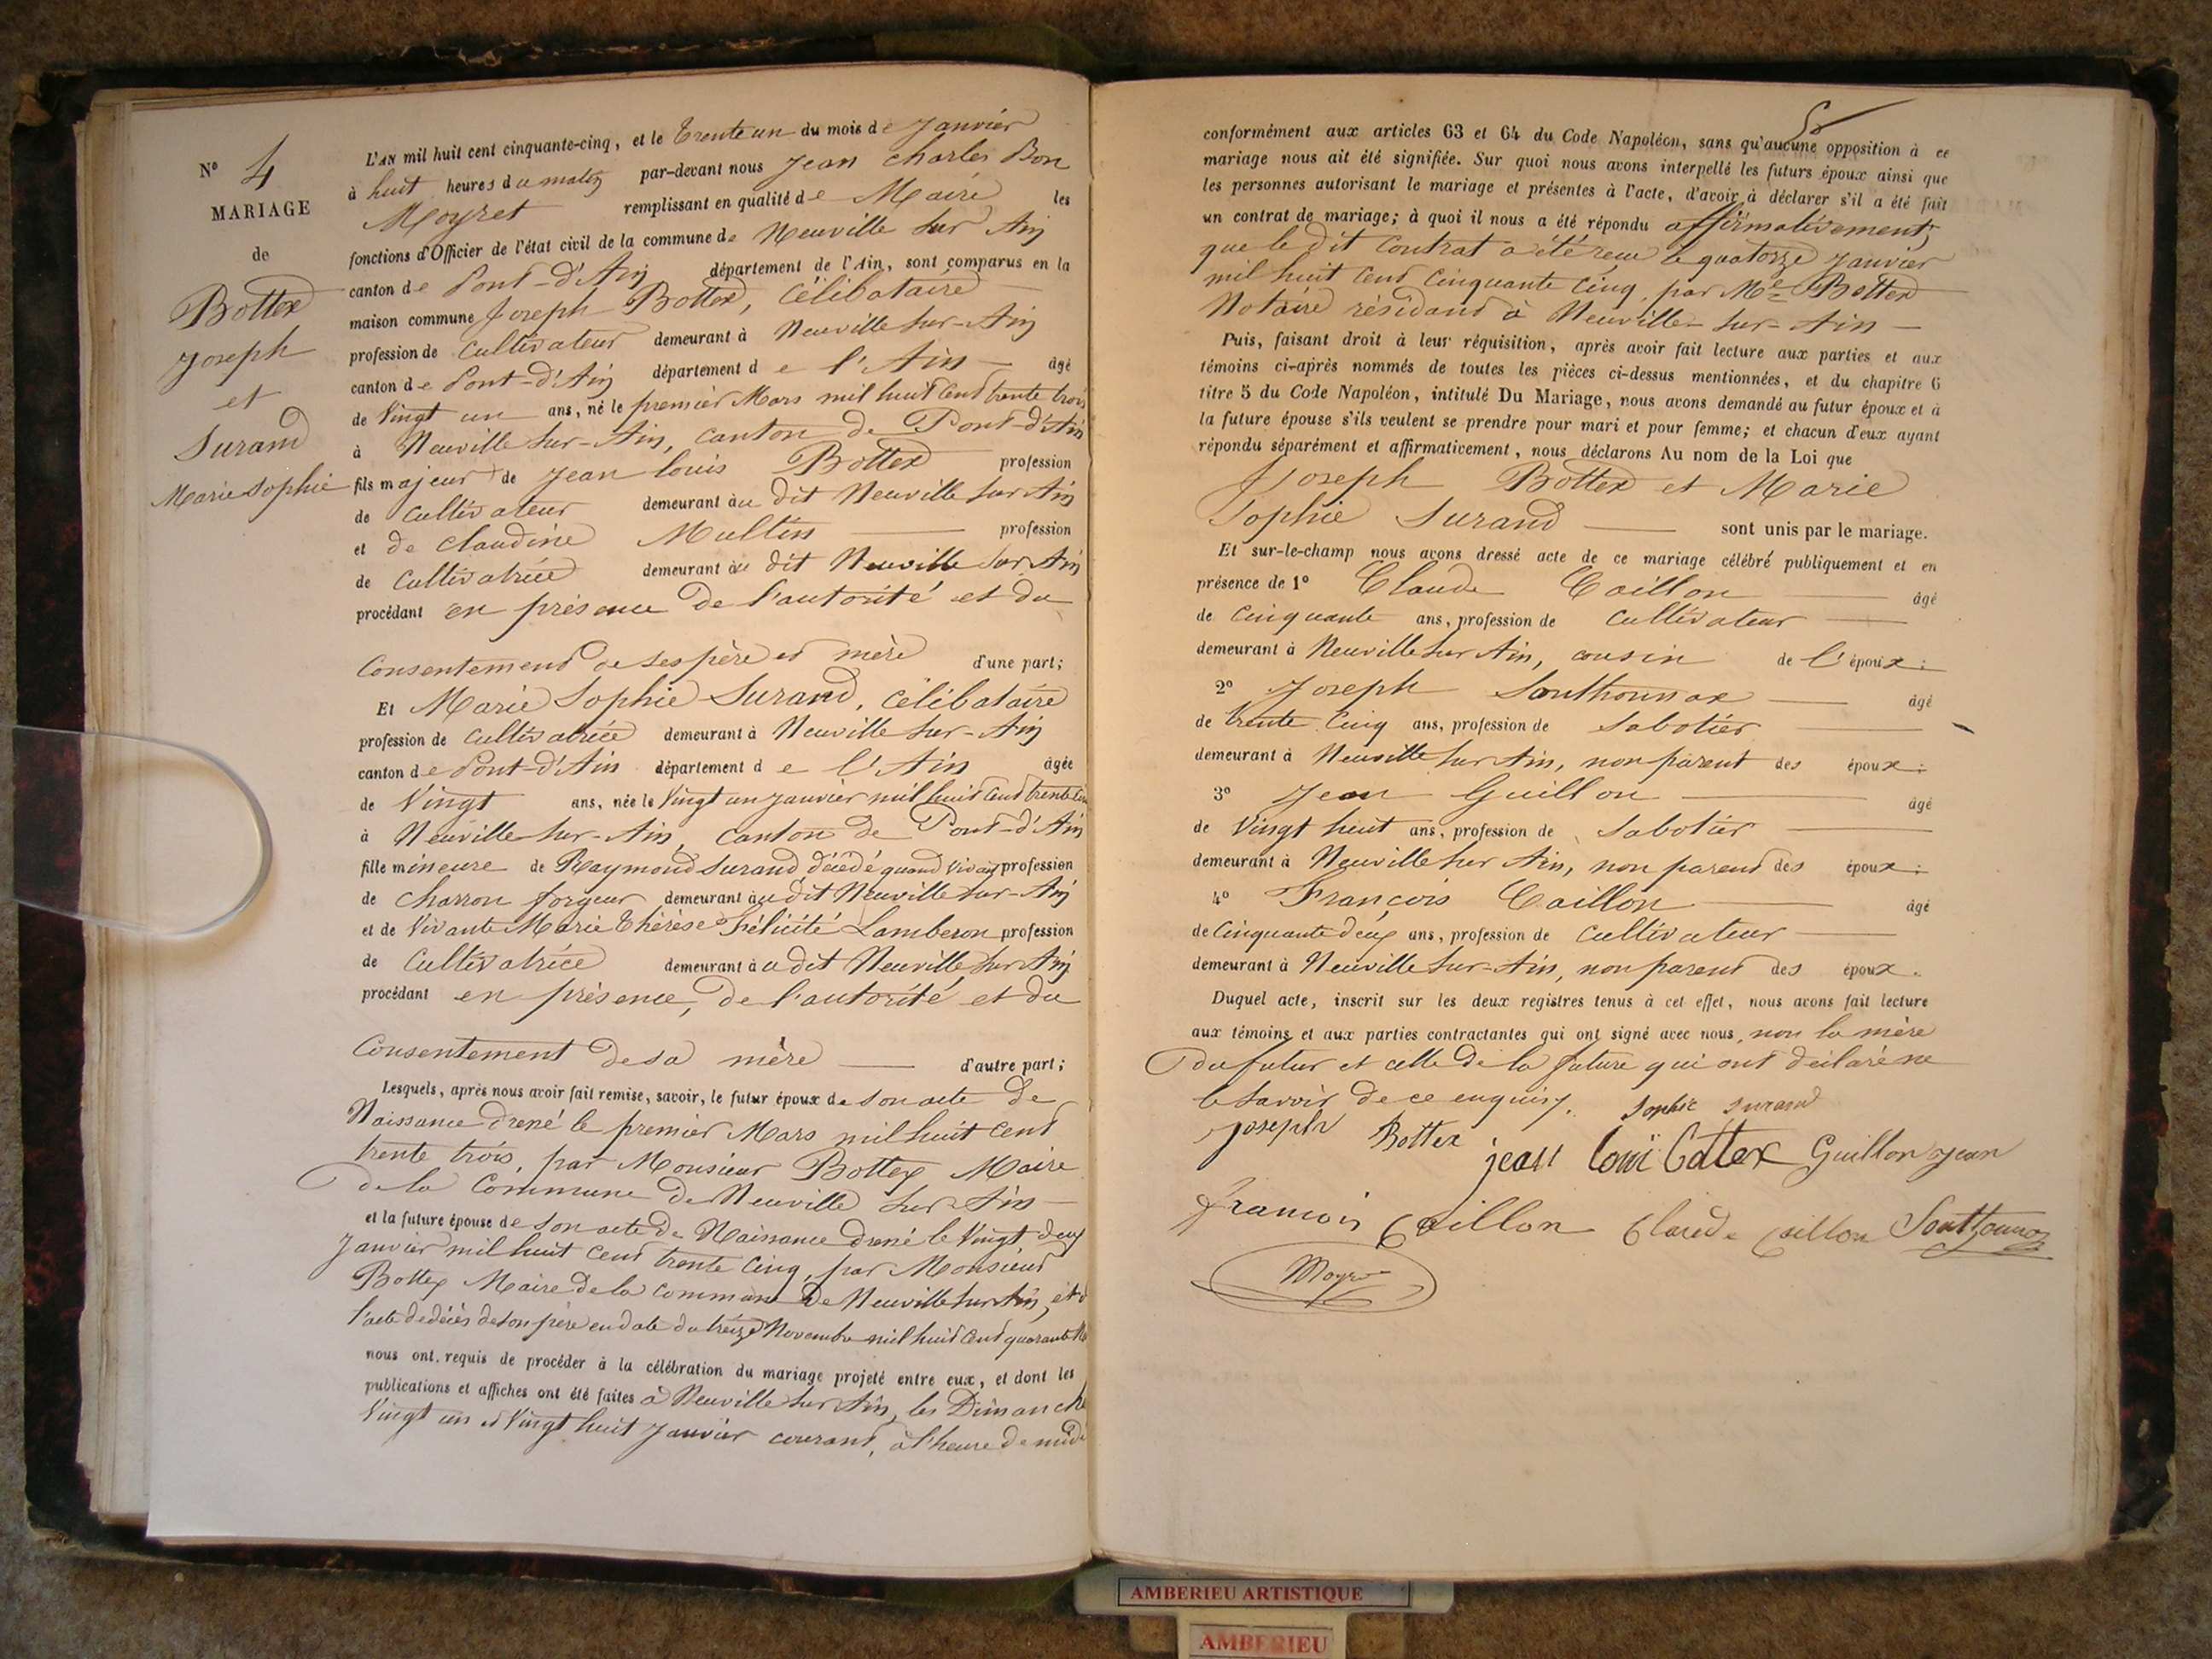 N° 4
MARIAGE
de
Bottex
Joseph
et
Surand
Marie Sophie
L'AN mil huit cent cinquante-cinq, et le trente un du mois de Janvier
à huit heures du matin par-devant nous Jean Charles Bon
Moyret remplissant en qualité de Maire les
fonctions d'Officier de l'état civil de la commune de Neuville sur Ain
canton de Pont-d'Ain département de l'Ain, sont comparus en la
maison commune Joseph Bottex, Célibataire
profession de Cultivateur demeurant à Neuville sur-Ain
canton de Pont-d'Ain département de l'Ain âgé
de Vingt un ans, né le premier Mars mil huit cent trente trois
à Neuville sur-Ain, canton de Pont-d'Ain
fils majeur de Jean Louis Bottex profession
de Cultivateur demeurant au dit Neuville sur Ain
et de Claudine Multin profession
de Cultivatrice demeurant au dit Neuville sur Ain
procédant en présence de l'autorité et du
Consentement de ses père et mère d'une part;
Et Marie Sophie Surand, célibataire
profession de Cultivatrice demeurant à Neuville sur-Ain
canton de Pont-d'Ain département de l'Ain âgée
de Vingt ans, née le Vingt un janvier mil huit cent trente
à Neuville sur-Ain, canton de Pont-d'Ain
fille mineure de Raymond Surand, décédé quand vivait profession
de Charron forgeur demeurant au dit Neuville sur-Ain
et de Vivante Marie Thérèse Félicité Lamberon profession
de Cultivatrice demeurant au dit Neuville sur Ain
procédant en présence, de l'autorité et du
Consentement de sa mère d'autre part;
Lesquels, après nous avoir fait remise, savoir, le futur époux de son acte de
Naissance dressé le premier Mars mil huit cent
trente trois, par Monsieur Bottex Maire
de la Commune de Neuville sur Ain
et la future épouse de son acte de Naissance dressé le Vingt deux
Janvier mil huit cent trente cinq, par Monsieur
Bottex Maire de la commune de Neuville sur Ain, et
l'acte de décès de son père en date du treize Novembre mil huit cent quarante
nous ont requis de procéder à la célébration du mariage projeté entre eux, et dont les
publications et affiches ont été faites à Neuville sur Ain, les Dimanche
Vingt un et Vingt huit Janvier courant, à l'heure de midi
conformément aux articles 63 et 64 du Code Napoléon, sans qu'aucune opposition à ce
mariage nous ait été signifiée. Sur quoi nous avons interpellé les futurs époux ainsi que
les personnes autorisant le mariage et présentes à l'acte, d'avoir à déclarer s'il a été fait
un contrat de mariage; à quoi il nous a été répondu affirmativement,
que le dit Contrat a été reçu le quatorze Janvier
mil huit cent cinquante cinq, par Me Bottex
Notaire résidant à Neuville-sur-Ain
Puis, faisant droit à leur réquisition, après avoir fait lecture aux parties et aux
témoins ci-après nommés de toutes les pièces ci-dessus mentionnées, et du chapitre 6
titre 5 du Code Napoléon, intitulé Du Mariage, nous avons demandé au futur époux et à
la future épouse s'ils veulent se prendre pour mari et pour femme; et chacun d'eux ayant
répondu séparément et affirmativement, nous déclarons Au nom de la Loi que
Joseph Bottex et Marie
Sophie Surand sont unis par le mariage.
Et sur-le-champ nous avons dressé acte de ce mariage célébré publiquement et en
présence de 1° Claude Caillon âgé
de Cinquante ans, profession de Cultivateur
demeurant à Neuville sur Ain, cousin de l'époux:
2° Joseph Southonnax âgé
de trente cinq ans, profession de Sabotier
demeurant à Neuville sur Ain, non parent des époux:
3° Jean Guillon âgé
de Vingt huit ans, profession de Sabotier
demeurant à Neuville sur Ain, non parent des époux:
4° François Caillon âgé
de Cinquante deux ans, profession de Cultivateur
demeurant à Neuville sur-Ain, non parent des époux.
Duquel acte, inscrit sur les deux registres tenus à cet effet, nous avons fait lecture
aux témoins et aux parties contractantes qui ont signé avec nous, non la mère
du futur et celle de la future qui ont déclaré ne
le savoir de ce enquis.
Sophie Surand
Joseph Bottex
jean Loui Bottex Guillon jean
francois Caillon Claude Caillon Southonnax
Moyret
AMBERIEU ARTISTIQUE
AMBERIEU